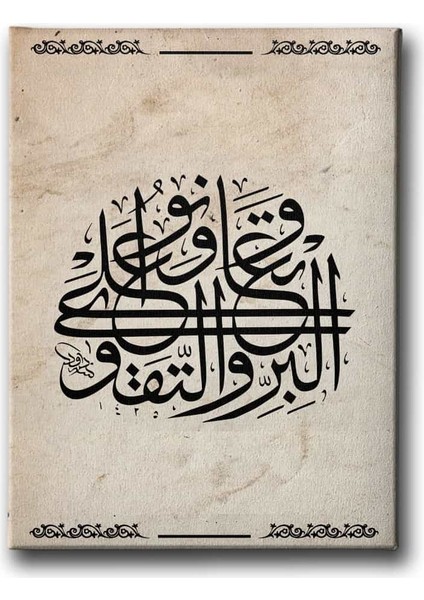 وتعاونوا على
البِرِّ والتَّقوى
١٤٣٥